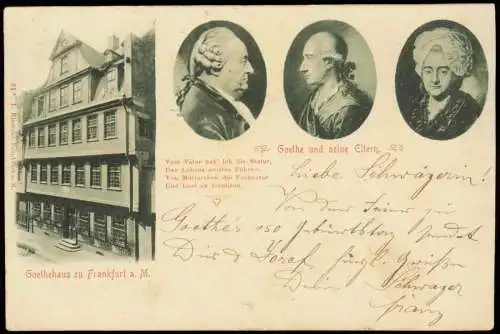 Goethe und seine Eltern.
Vom Vater hab' ich die Statur,
Des Lebens ernstes Führen,
Von Mütterchen die Frohnatur
Und Lust zu fabuliren.
Liebe Schwägerin!
Von der Feier zu
Goethe's 150 Geburtstag sendet
Dir & Josef, Grüße
Dein Schwager
Franz
Goethehaus zu Frankfurt a. M.